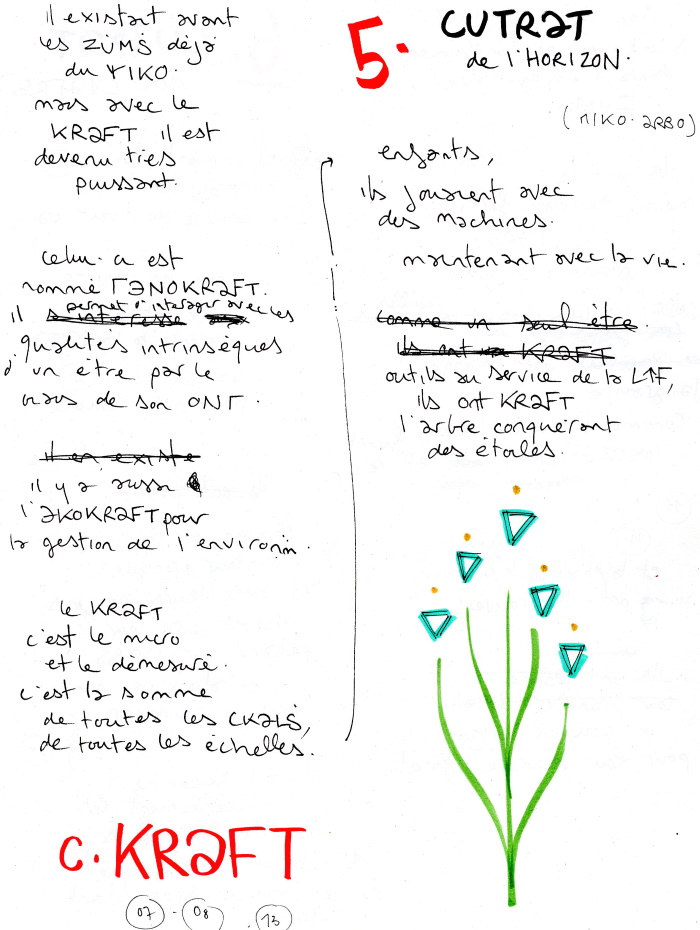 il existait avant
les ZUMS déjà
du YIKO.
mais avec le
KRAFT il est
devenu très
puissant.
celui-ci est
nommé
il permet d'interagir avec les
qualités intrinsèques
d'un être par le
biais de son ONΓ.
il en existe
il y a aussi
l'ƏKOKRƏFT pour
la gestion de l'environ.
le KRƏFT
c'est le micro
et le démesuré.
c'est la somme
de toutes les CKƏLS,
de toutes les échelles.
c. KRƏFT
07 - 08 . 13
5. CUTRƏT
de l'HORIZON.
(MIKO. ƏRBO)
enfants,
ils jouaient avec
des machines.
maintenant avec la vie.
comme un seul être
ils ont KRƏFT
outils au service de la
ils ont KRƏFT
l'arbre conquérant
des étoiles.